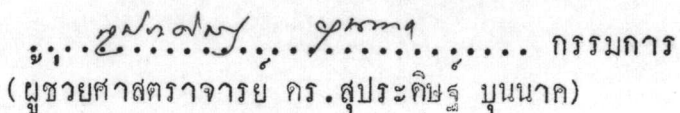 ........................................ กรรมการ
(ผู้ช่วยศาสตราจารย์ ดร.สุประดิษฐ์ บุนนาค)